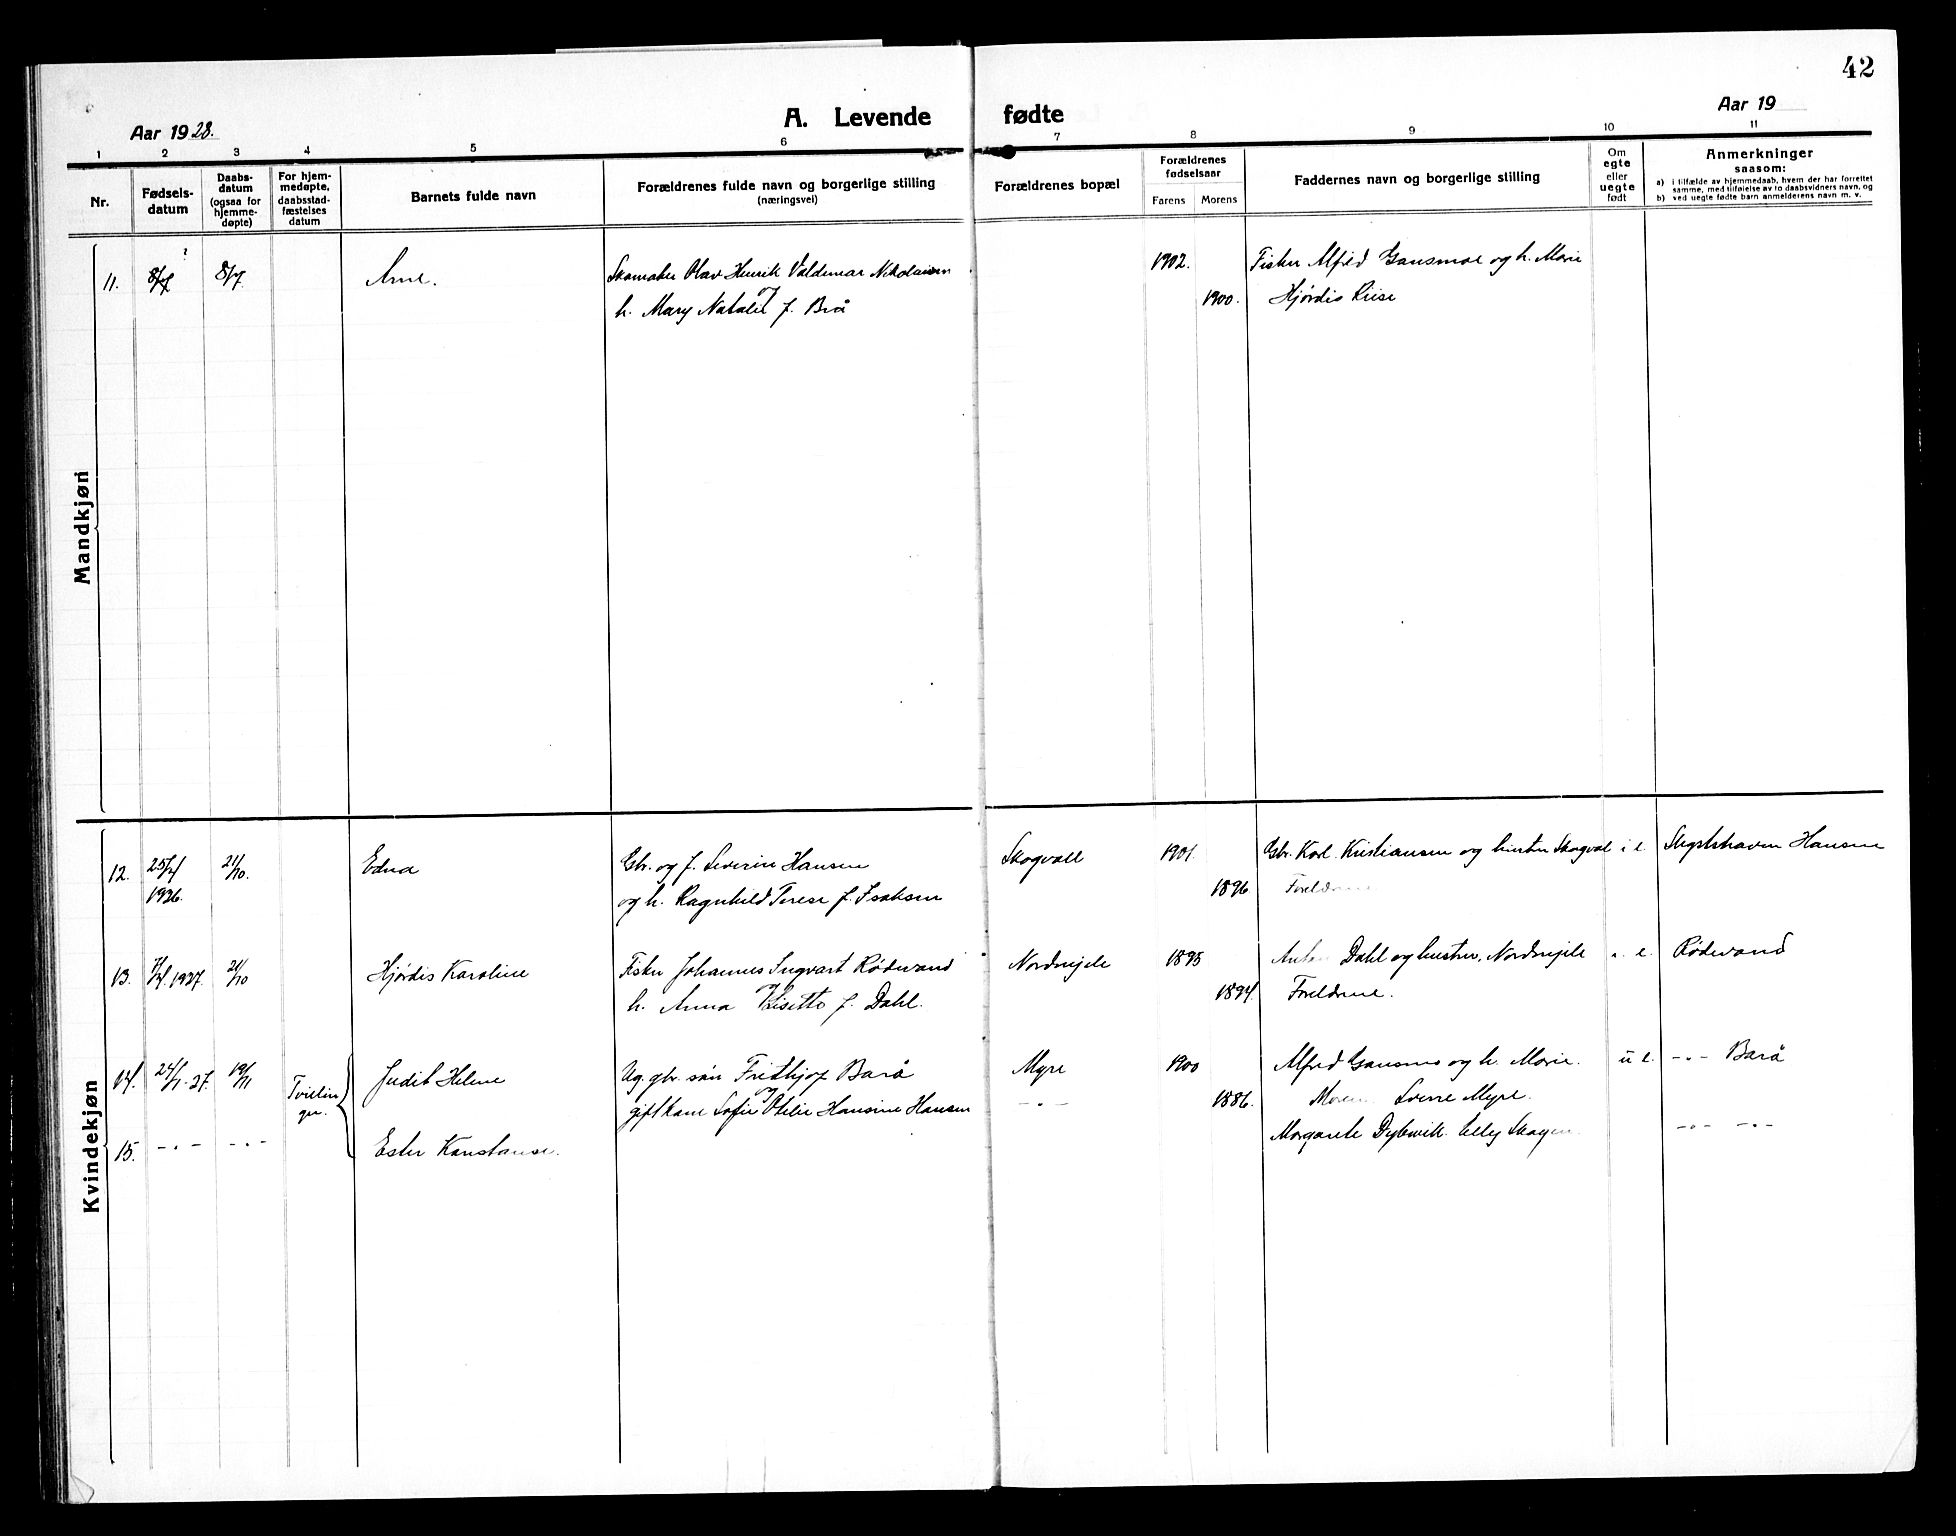 42
Aar 1928.
A. Levende fødte
Aar 19
1 2 3 4 5 6 7 8 9 10 11
Nr.
Fødsels-
datum
Daabs-
datum
(ogsaa for
hjemme-
døpte)
For hjem-
medøpte,
daabsstad-
fæstelses
datum
Barnets fulde navn
Forældrenes fulde navn og borgerlige stilling
(næringsvei)
Forældrenes bopæl
Forældrenes
fødselsaar
Farens Morens
Faddernes navn og borgerlige stilling
Om
egte
eller
uegte
født
Anmerkninger
saasom:
a) i tilfælde av hjemmedaab, hvem der har forrettet
samme, med tilføielse av to daabsvidners navn, og
b) ved uegte fødte barn anmelderens navn m. v.
Mandkjøn
11. 8/7 Arne. Skomaker Olav Henrik Valdemar Nikolaisen 1902. Fisker Alfred Gansmoe og h. Marie
og
h. Mary Natalie f. Brå 1900. Hjørdis Riise
Kvindekjøn
12. 25/7 21/10. Edna Gbr. og f. Severin Hansen Skogvoll 1901. Gbr. Karl Kristiansen og hustru Skogvol i e. Hansen
1926. og h. Ragnhild Terese f. Isaksen 1896 Foreldrene
13. 1927. 21/10 Hjørdis Karoline Fisker Johannes Ingvart Rødsand Nordmjele 1895 Dahl og hustru, Nordmjele " e. Rødsand
og
h. Anna f. Dahl. 1894. Foreldrene.
14. 27. 19/11 Tvillin Judit Helene Ug. gbr. søn Fridthjof Barå Myre 1900 Alfred Gansmo og h. Marie. u e. -"- Barå
ger. og
gift kone Sofie Otelie Hansine Hansen -"- 1886. Moren Sverre Myre.
15. -"- -"- Ester Konstanse. Margarete Dybwik. Elly Skogen. -"- -"-